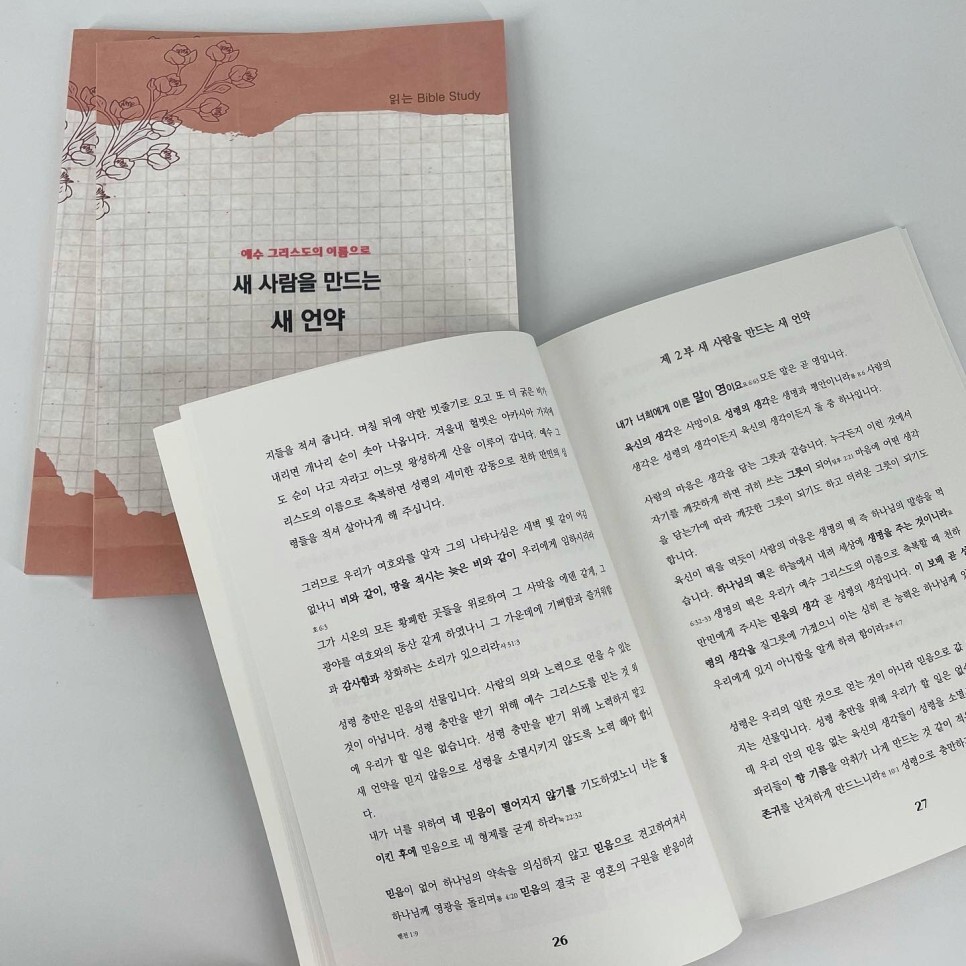 읽는 Bible Study
예수 그리스도의 이름으로
새 사람을 만드는
새 언약
지들을 적셔 줍니다. 며칠 뒤에 약한 빗줄기로 오고 또 더 굵은 비가
내리면 개나리 순이 솟아 나옵니다. 겨울내 헐벗은 아카시아 가지에
도 순이 나고 자라고 어느덧 왕성하게 산을 이루어 갑니다. 예수 그
리스도의 이름으로 축복하면 성령의 세미한 감동으로 천하 만민의 심
령들을 적셔 살아나게 해 주십니다.
그러므로 우리가 여호와를 알자 그의 나타나심은 새벽 빛 같이 어김
없나니 비와 같이, 땅을 적시는 늦은 비와 같이 우리에게 임하시리라
호 6:3
그가 시온의 모든 황폐한 곳들을 위로하여 그 사막을 에덴 같게, 그
광야를 여호와의 동산 같게 하였나니 그 가운데에 기뻐함과 즐거워함
과 감사함과 창화하는 소리가 있으리라사 51:3
성령 충만은 믿음의 선물입니다. 사람의 의와 노력으로 얻을 수 있는
것이 아닙니다. 성령 충만을 받기 위해 예수 그리스도를 믿는 것 외
에 우리가 할 일은 없습니다. 성령 충만을 받기 위해 노력하지 말고
새 언약을 믿지 않음으로 성령을 소멸시키지 않도록 노력 해야 합니
다.
내가 너를 위하여 네 믿음이 떨어지지 않기를 기도하였노니 너는 돌
이킨 후에 믿음으로 네 형제를 굳게 하라눅 22:32
믿음이 없어 하나님의 약속을 의심하지 않고 믿음으로 견고하여져서
하나님께 영광을 돌리며롬 4:20 믿음의 결국 곧 영혼의 구원을 받음이라
벧전 1:9
26
제 2부 새 사람을 만드는 새 언약
내가 너희에게 이른 말이 영이요요 6:63 모든 말은 곧 영입니다.
육신의 생각은 사망이요 성령의 생각은 생명과 평안이니라롬 8:6 사람의
생각은 성령의 생각이든지 육신의 생각이든지 둘 중 하나입니다.
사람의 마음은 생각을 담는 그릇과 같습니다. 누구든지 이런 것에서
자기를 깨끗하게 하면 귀히 쓰는 그릇이 되어딤후 2:21 마음에 어떤 생각
을 담는가에 따라 깨끗한 그릇이 되기도 하고 더러운 그릇이 되기도
합니다.
육신이 떡을 먹듯이 사람의 마음은 생명의 떡 즉 하나님의 말씀을 먹
습니다. 하나님의 떡은 하늘에서 내려 세상에 생명을 주는 것이니라요
6:32-33 생명의 떡은 우리가 예수 그리스도의 이름으로 축복할 때 천하
만민에게 주시는 믿음의 생각 곧 성령의 생각입니다. 이 보배 곧 성
령의 생각을 질그릇에 가졌으니 이는 심히 큰 능력은 하나님께 있
우리에게 있지 아니함을 알게 하려 함이라고후 4:7
성령은 우리의 일한 것으로 얻는 것이 아니라 믿음으로 값
지는 선물입니다. 성령 충만을 위해 우리가 할 일은 없습
데 우리 안의 믿음 없는 육신의 생각들이 성령을 소멸
파리들이 향 기름을 악취가 나게 만드는 것 같이 적은
존귀를 난처하게 만드느니라전 10:1 성령으로 충만하
27